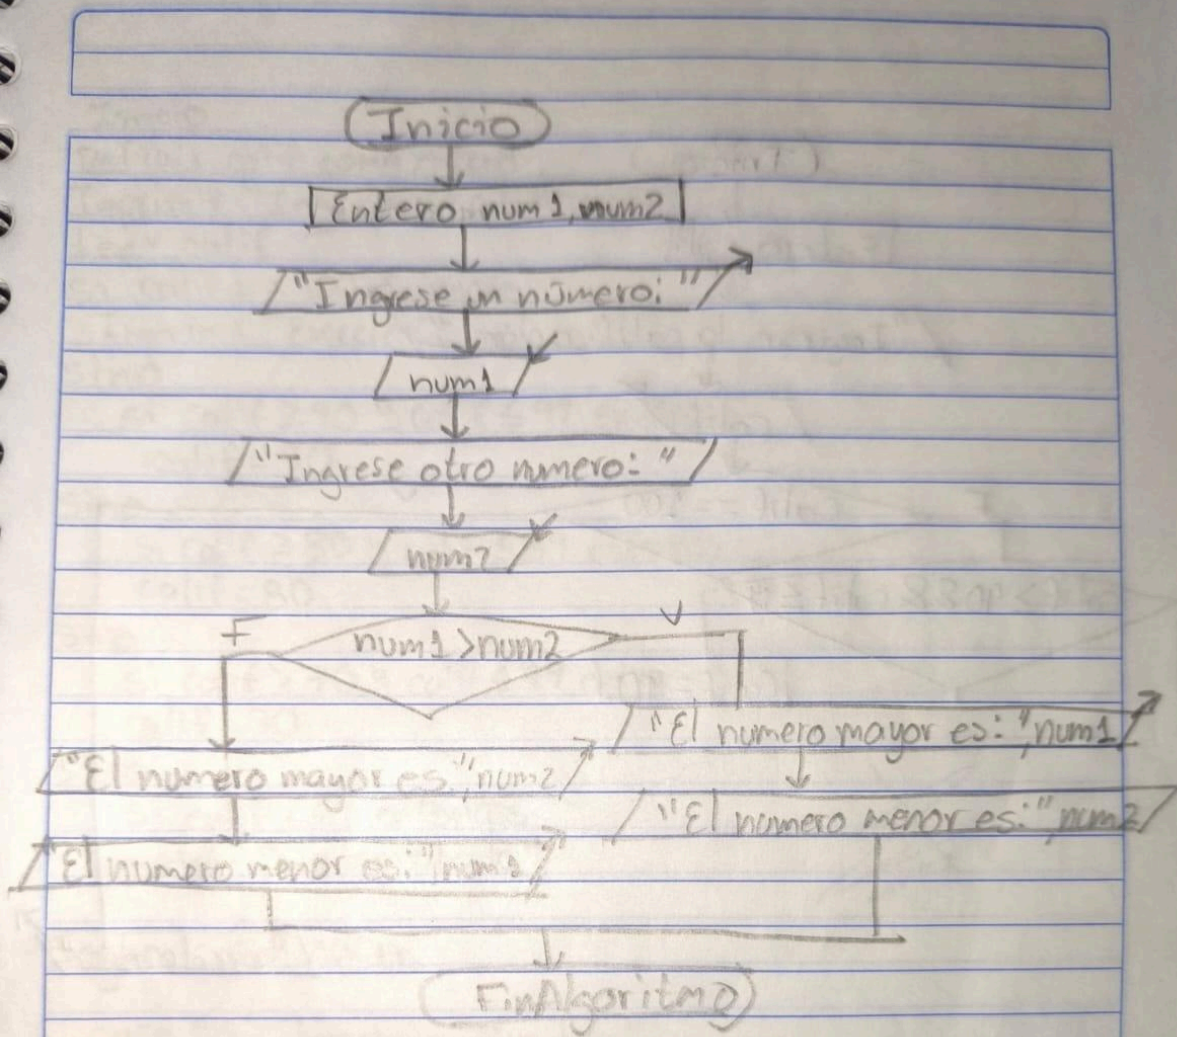 Inicio
Entero num1, num2
"Ingrese un número: "
num1
"Ingrese otro numero: "
num2
F
num1 > num2
V
"El numero mayor es: ", num1
"El numero mayor es: ", num2
"El numero menor es: ", num2
"El numero menor es: ", num1
FinAlgoritmo